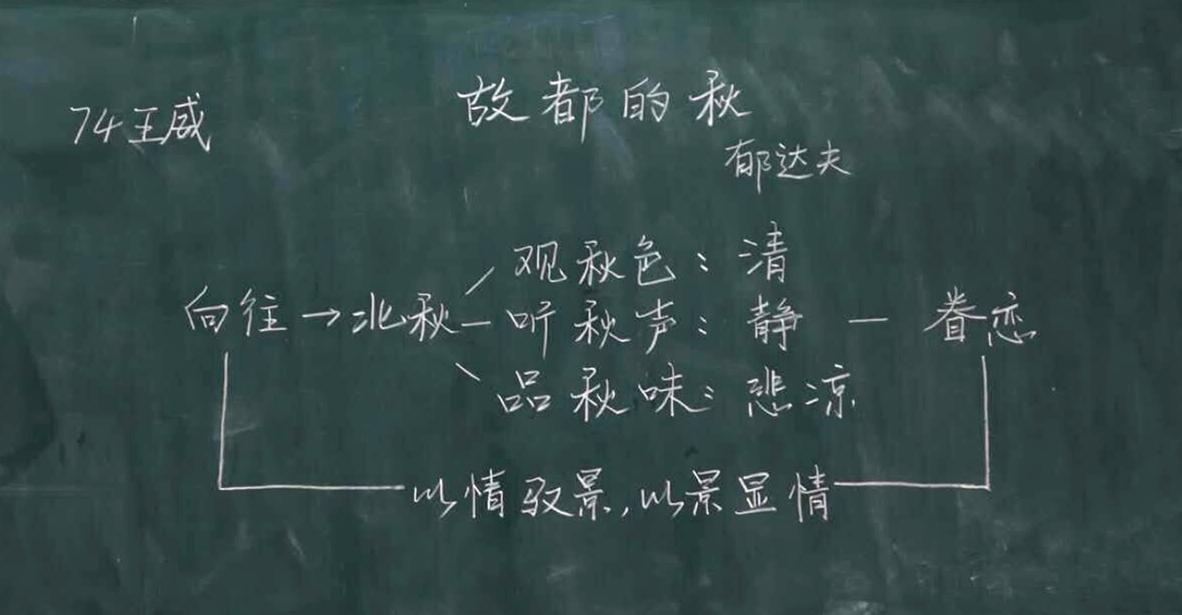 故都的秋
74王威
郁达夫
观秋色：清
向往→北秋—听秋声：静—眷恋
品秋味：悲凉
以情驭景，以景显情